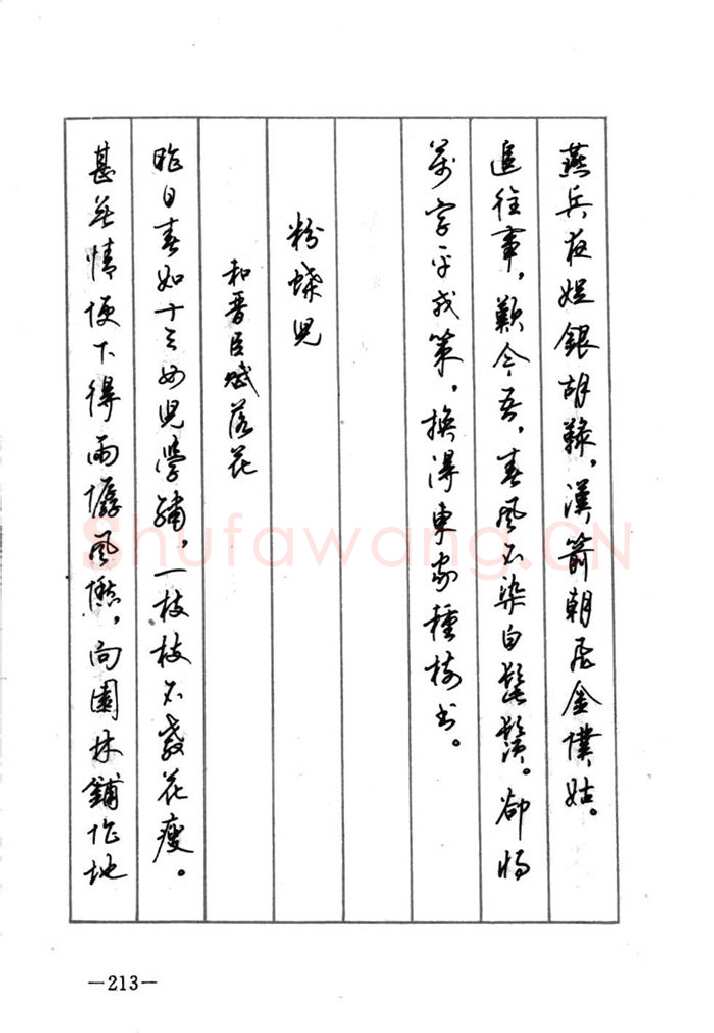 燕兵夜娖銀胡䩮，漢箭朝飛金僕姑。
追往事，歎今吾，春風不染白髭鬚。卻將
萬字平戎策，換得東家種樹书。
粉蝶兒
和晋臣赋落花
昨日春如十三女兒學繡，一枝枝不教花瘦。
甚無情便下得雨僝風僽，向園林鋪作地
Shufawang.CN
—213—